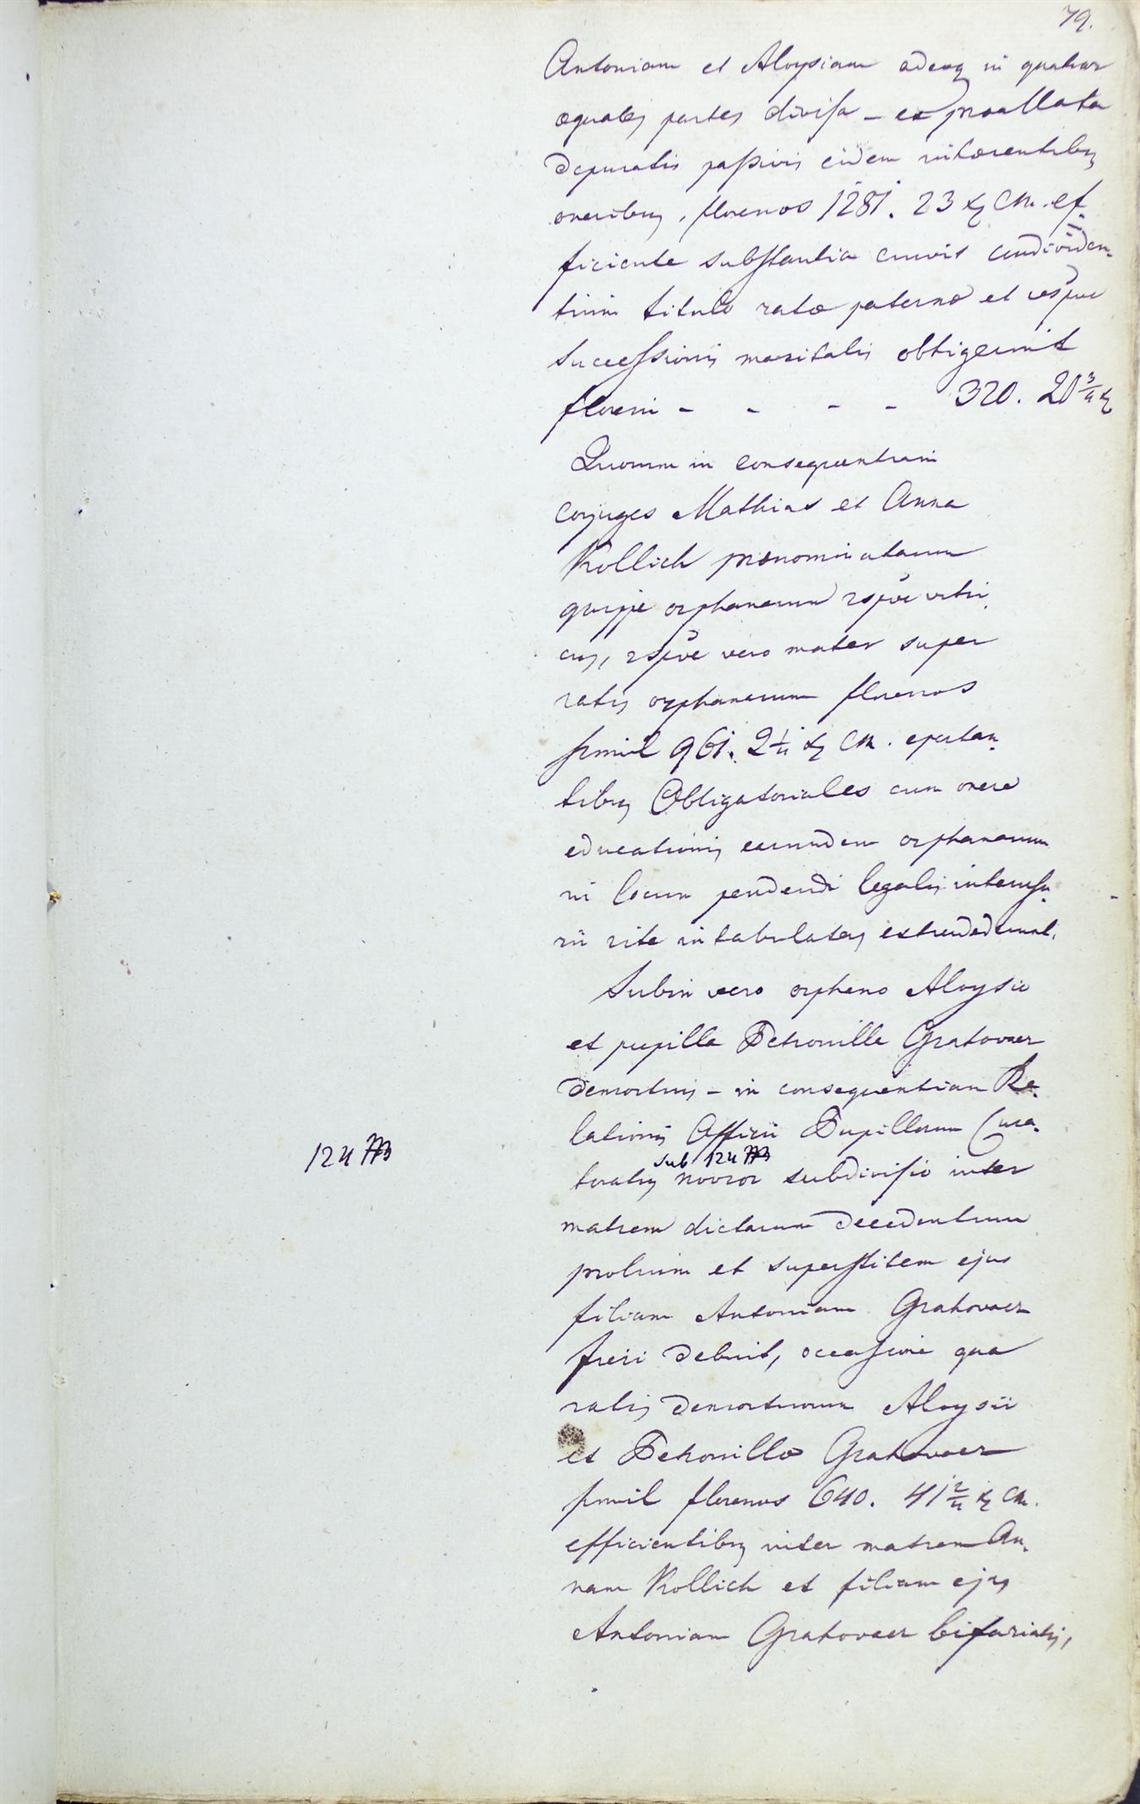 79.
Antoniam et Aloysiam adeoq in quatuor
æquales partes divisa – ex præallata
depuratis passivis eidem inhærentibus
oneribus, florenos 1281. 23 x CM. ef-
ficiente substantia cuivis condividen-
tium titulo ratæ paternæ et respve
successionis maritalis obtigerunt
floreni - - - - 320. 20 3/4 x
Quorum in consequentiam
conjuges Mathias et Anna
Kollich prænominatarum
quippe orphanarum respve vitri-
cus, respve vero mater super
ratis orphanarum florenos
simul 961. 2 1/4 x CM. efectan-
tibus Obligatoriales cum onere
educationis earundem orphanarum
in locum pendendi legalis interusu-
rii rite intabulatas extradederunt.
Subin vero orphano Aloysio
et pupilla Petronilla Grahovaer
demortuis – in consequentiam Re-
lationis Officii Pupillorum Cura-
sub 124 BB
124 BB
toralis novior subdivisio inter
matrem dictarum decedentium
prolium et superstitem ejus
filiam Antoniam Grahovaer
fieri debuit, occasione qua
ratis demortuorum Aloysii
et Petronillæ Grahovaer
simul florenos 640. 41 2/4 x CM.
efficientibus inter matrem An-
nam Kollich et filiam ejus
Antoniam Grahovaer bifariatis,